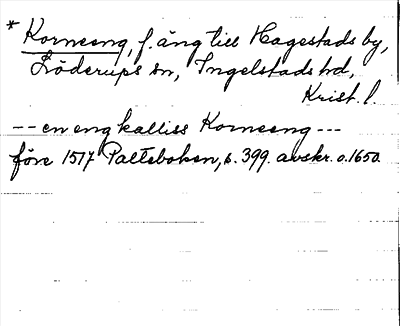 * Korneeng, f. äng till Hagestads by,
Löderups sn, Ingelstads hd,
Krist. l.
-- en eng kalliss Korneeng ---
före 1517 Paltebohen, s. 399. avskr. o. 1650.